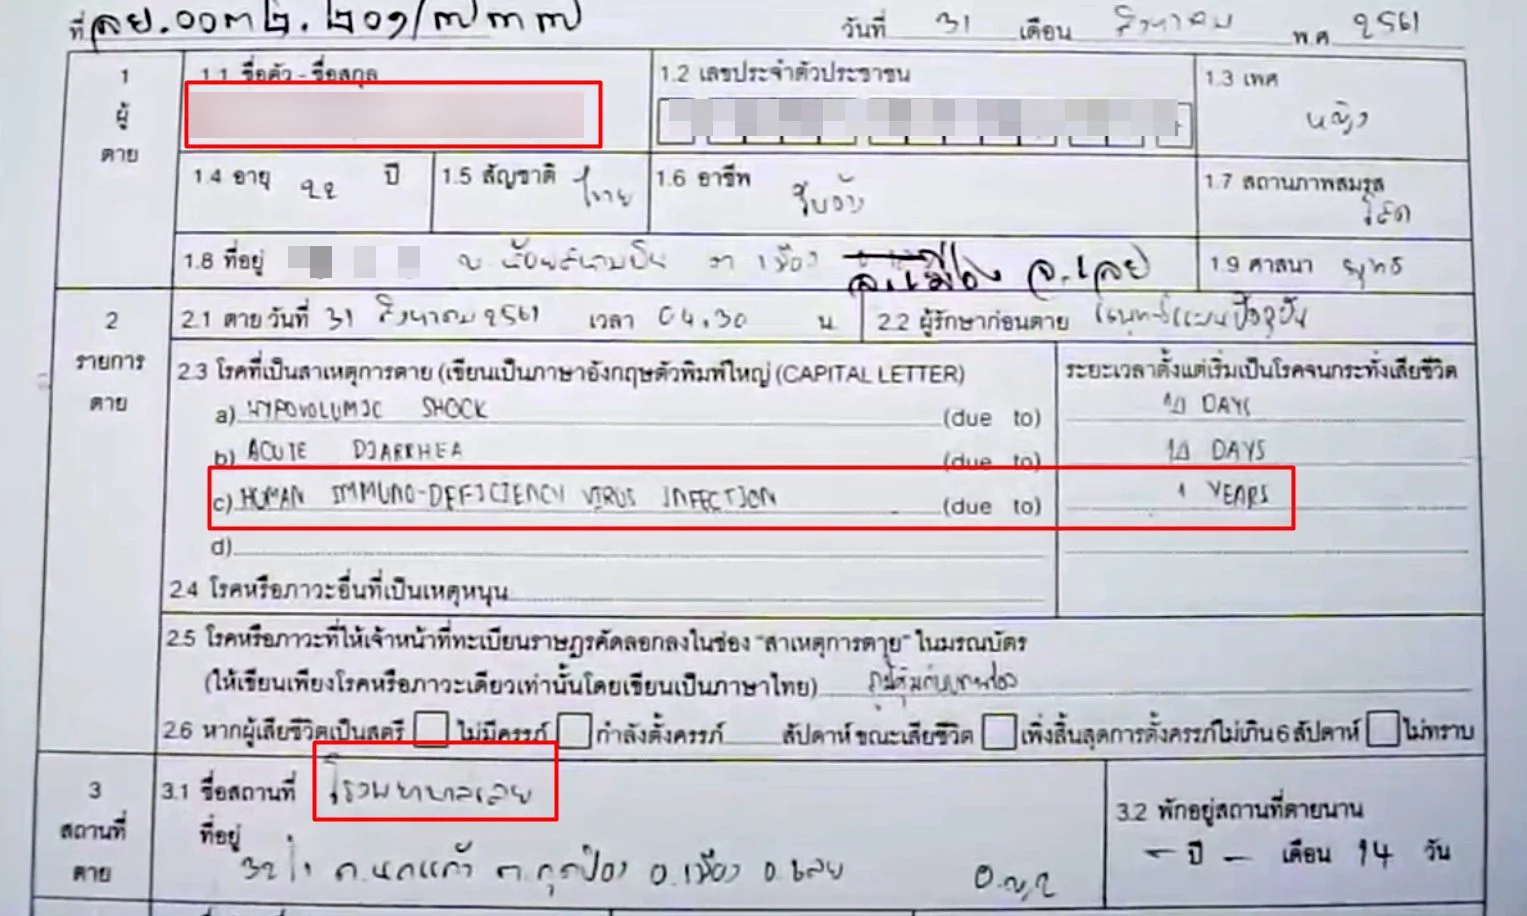 ที่ ลย.๐๐๓๒.๒๐๑/๗๓๗ วันที่ 31 เดือน สิงหาคม พ.ศ. 2561
1 ผู้ตาย
1.1 ชื่อตัว - ชื่อสกุล
1.2 เลขประจำตัวประชาชน
1.3 เพศ หญิง
1.4 อายุ ๒๒ ปี
1.5 สัญชาติ ไทย
1.6 อาชีพ รับจ้าง
1.7 สถานภาพสมรส โสด
1.8 ที่อยู่ เมือง อ.เมือง จ.เลย
1.9 ศาสนา พุทธ
2 รายการตาย
2.1 ตายวันที่ 31 สิงหาคม 2561 เวลา 04.30 น.
2.2 ผู้รักษาก่อนตาย แพทย์แผนปัจจุบัน
2.3 โรคที่เป็นสาเหตุการตาย (เขียนเป็นภาษาอังกฤษตัวพิมพ์ใหญ่ (CAPITAL LETTER)
ระยะเวลาตั้งแต่เริ่มเป็นโรคจนกระทั่งเสียชีวิต
a) HYPOVOLUMIC SHOCK (due to) DAYS
b) ACUTE DIARRHEA (due to) DAYS
c) HUMAN IMMUNO-DEFICIENCY VIRUS INFECTION (due to) 1 YEARS
d)
2.4 โรคหรือภาวะอื่นที่เป็นเหตุหนุน
2.5 โรคหรือภาวะที่ให้เจ้าหน้าที่ทะเบียนราษฎรคัดลอกลงในช่อง "สาเหตุการตาย" ในมรณบัตร
(ให้เขียนเพียงโรคหรือภาวะเดียวเท่านั้นโดยเขียนเป็นภาษาไทย) ภูมิคุ้มกันบกพร่อง
2.6 หากผู้เสียชีวิตเป็นสตรี ไม่มีครรภ์ กำลังตั้งครรภ์ สัปดาห์ขณะเสียชีวิต เพิ่งสิ้นสุดการตั้งครรภ์ไม่เกิน 6 สัปดาห์ ไม่ทราบ
3 สถานที่ตาย
3.1 ชื่อสถานที่ โรงพยาบาลเลย
ที่อยู่ 32/1 ต.กุดป่อง อ.เมือง จ.เลย
3.2 พักอยู่สถานที่ตายนาน
- ปี - เดือน 14 วัน